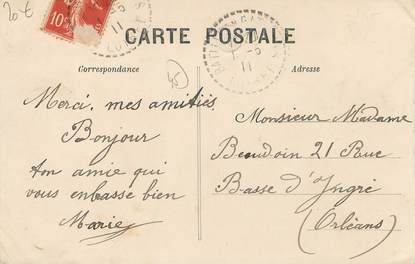 20 €
10c
11
CARTE POSTALE
-5
11
Correspondance
Adresse
45
Merci, mes amitiés
Bonjour
ton amie qui
vous enbasse bien
Marie
Monsieur Madame
Beudoin 21 Rue
Basse d'Yngré
(Orléans)